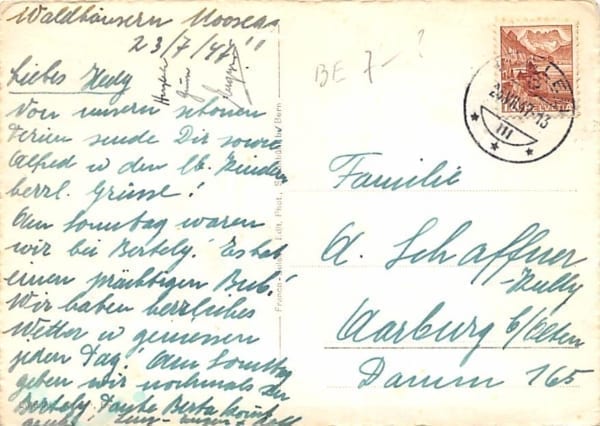 Waldhäusern Moosea
23/7/47
Liebes Hedy
Von unsern schönen
Ferien sende Dir sowie
Alfred u den lb. Kinder
herzl. Grüsse!
Am Sonntag waren
wir bei Bertely. Es hat
einen prächtigen Bub.
Wir haben herzliches
Wetter u geniessen
jeden Tag! Am Sonntag
gehen wir nochmals zu
Bertely, Tante Berta
BE 7-?
HELVETIA
III
Familie
A. Schaffner
Aarburg b/Olten
Damm 165